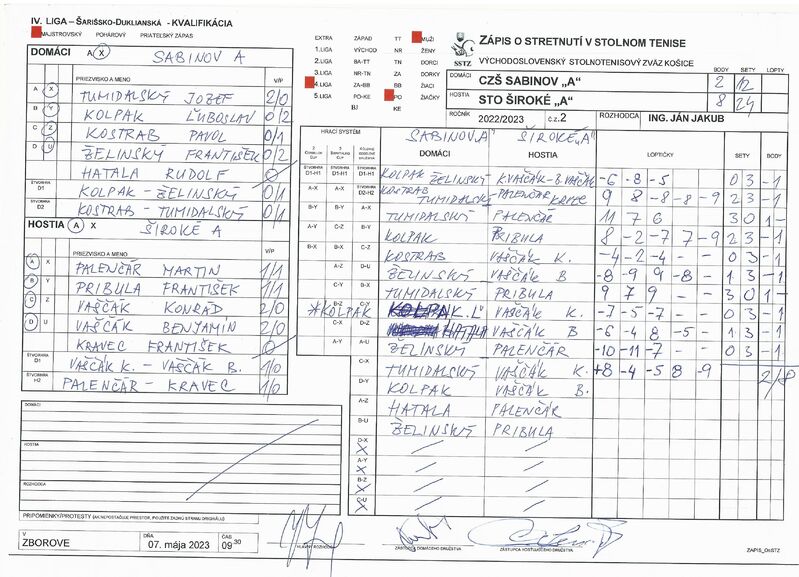 IV. LIGA – ŠARIŠSKO-DUKLIANSKÁ - KVALIFIKÁCIA
MAJSTROVSKÝ POHÁROVÝ PRIATEĽSKÝ ZÁPAS
DOMÁCI A X SABINOV A
PRIEZVISKO A MENO V/P
A X TUMIDALSKÝ JOZEF 2/0
B Y KOLPAK ĽUBOSLAV 0/2
C Z KOSTRAB PAVOL 0/1
D U ŽELINSKÝ FRANTIŠEK 0/2
HATALA RUDOLF
ŠTVORHRA D1 KOLPAK - ŽELINSKÝ 0/1
ŠTVORHRA D2 KOSTRAB - TUMIDALSKÝ 0/1
HOSTIA A X ŠIROKÉ A
PRIEZVISKO A MENO V/P
A X PALENČÁR MARTIN 1/1
B Y PRIBULA FRANTIŠEK 1/1
C Z VAŠČÁK KONRÁD 2/0
D U VAŠČÁK BENJAMÍN 2/0
KRAVEC FRANTIŠEK
ŠTVORHRA D1 VAŠČÁK K. - VAŠČÁK B. 1/0
ŠTVORHRA H2 PALENČÁR - KRAVEC 1/0
DOMÁCI
HOSTIA
ROZHODCA
PRIPOMIENKY/PROTESTY (AK NEPOSTAČUJE PRIESTOR, POUŽITE ZADNÚ STRANU ORIGINÁLU)
V ZBOROVE
DŇA 07. mája 2023
ČAS 09:30
EXTRA ZÁPAD TT MUŽI
1.LIGA VÝCHOD NR ŽENY
2.LIGA BA-TT TN DORCI
3.LIGA NR-TN ZA DORKY
4.LIGA ZA-BB BB ŽIACI
5.LIGA PO-KE PO ŽIAČKY
BJ KE
SSTZ
ZÁPIS O STRETNUTÍ V STOLNOM TENISE
VÝCHODOSLOVENSKÝ STOLNOTENISOVÝ ZVÄZ KOŠICE
BODY SETY LOPTY
DOMÁCI CZŠ SABINOV „A" 2 12
HOSTIA STO ŠIROKÉ „A" 8 24
ROČNÍK 2022/2023 č.z. 2 ROZHODCA ING. JÁN JAKUB
HRACÍ SYSTÉM
SABINOV „A" ŠIROKÉ „A"
DOMÁCI HOSTIA LOPTIČKY SETY BODY
D1-H1 D1-H1 D1-H1 KOLPAK ŽELINSKÝ KVAŠČÁK-B.VAŠČÁK -6 -8 -5 0 3 -1
A-X A-X D2-H2 KOSTRAB TUMIDALSKÝ PALENČÁR KRAVEC 9 8 -8 -8 -9 2 3 -1
B-Y B-Y A-X TUMIDALSKÝ PALENČÁR 11 7 6 3 0 1-
A-Y C-Z B-Y KOLPAK PRIBULA 8 -2 -7 7 -9 2 3 -1
B-X C-Z KOSTRAB VAŠČÁK K. -4 -2 -4 - 0 3 -1
D-U ŽELINSKÝ VAŠČÁK B -8 -9 9 -8 - 1 3 -1
A-Y TUMIDALSKÝ PRIBULA 9 7 9 - - 3 0 1-
*KOLPAK B-Z KOLPAK Ľ VAŠČÁK K. -7 -5 -7 - 0 3 -1
D-Z HATALA VAŠČÁK B -6 -4 8 -5 - 1 3 -1
ŽELINSKÝ PALENČÁR -10 -11 -7 - - 0 3 -1
C-X TUMIDALSKÝ VAŠČÁK K. +8 -4 -5 8 -9 2/8
D-Y KOLPAK VAŠČÁK B.
A-Z HATALA PALENČÁR
B-U ŽELINSKÝ PRIBULA
D-X
A-Y
B-Z
C-U
HLAVNÝ ROZHODCA
ZÁSTUPCA DOMÁCEHO DRUŽSTVA
ZÁSTUPCA HOSŤUJÚCEHO DRUŽSTVA
ZAPIS_OSSTZ